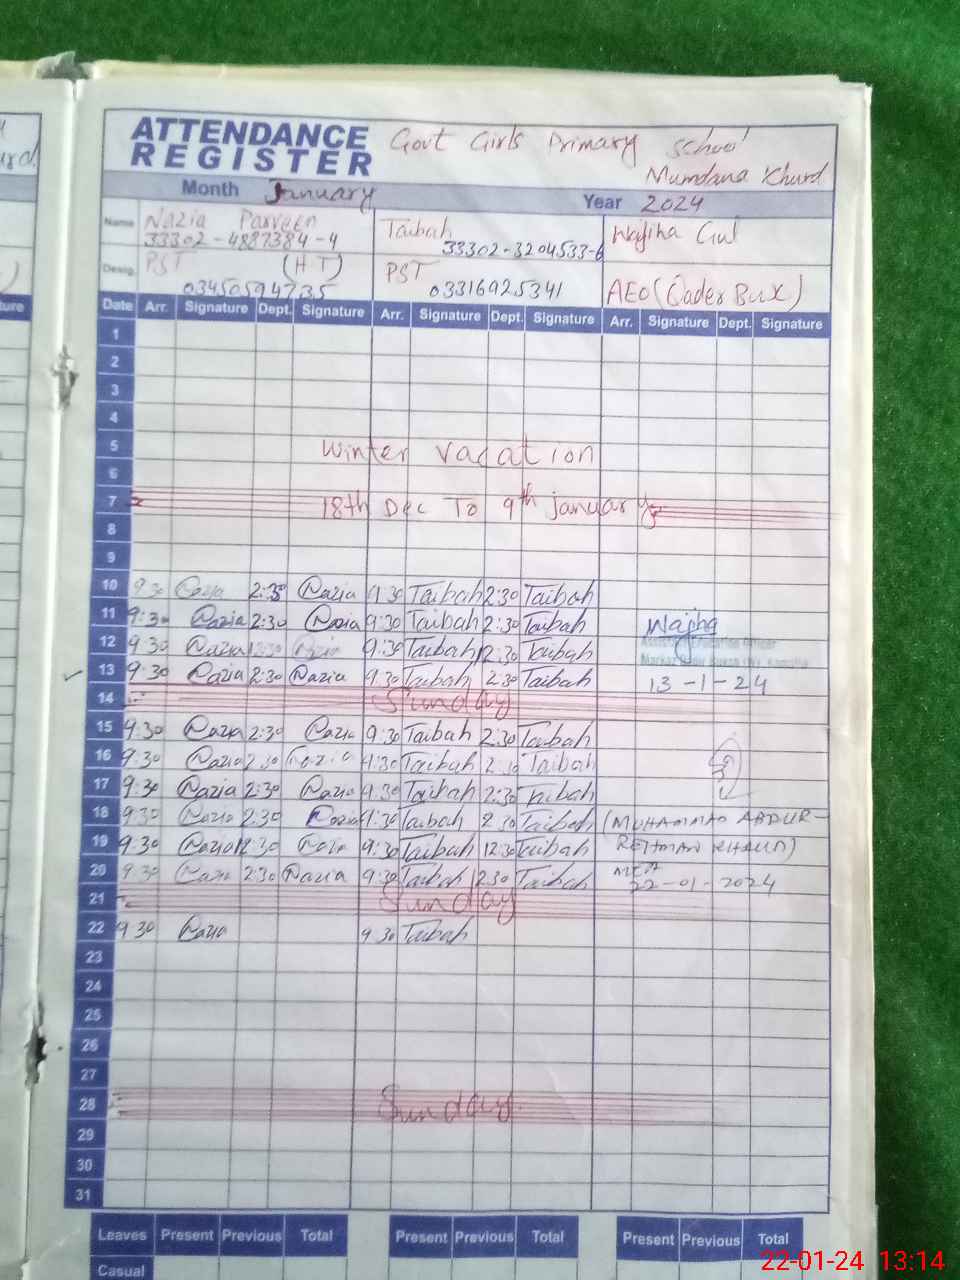 ATTENDANCE REGISTER Govt Girls Primary School
Mumdana Khurd
Month January Year 2024
Name Nazia Parveen Taibah Wajiha Gul
33302-4887384-4 33302-3204533-6
Desig. PST (HT) PST AEO (Qader Bux)
03450594735 03316925341
Date Arr. Signature Dept. Signature Arr. Signature Dept. Signature Arr. Signature Dept. Signature
1
2
3
4
5 Winter Vacation
6
7 18th Dec To 9th january
8
9
10 9:30 Nazia 2:30 Nazia 9:30 Taibah 2:30 Taibah
11 9:30 Nazia 2:30 Nazia 9:30 Taibah 2:30 Taibah Wajiha
12 9:30 Nazia 12:30 Nazia 9:30 Taibah 12:30 Taibah Assistant Education Officer
13 9:30 Nazia 2:30 Nazia 9:30 Taibah 2:30 Taibah 13-1-24
14 Sunday
15 9:30 Nazia 2:30 Nazia 9:30 Taibah 2:30 Taibah
16 9:30 Nazia 2:30 Nazia 9:30 Taibah 2:30 Taibah
17 9:30 Nazia 2:30 Nazia 9:30 Taibah 2:30 Taibah
18 9:30 Nazia 2:30 Nazia 9:30 Taibah 2:30 Taibah (MUHAMMAD ABDUR-
19 9:30 Nazia 12:30 Nazia 9:30 Taibah 12:30 Taibah REHMAN KHALID)
20 9:30 Nazia 2:30 Nazia 9:30 Taibah 2:30 Taibah MEA
22-01-2024
21 Sunday
22 9:30 Nazia 9:30 Taibah
23
24
25
26
27
28 Sunday
29
30
31
Leaves Present Previous Total Present Previous Total Present Previous Total
Casual
22-01-24 13:14